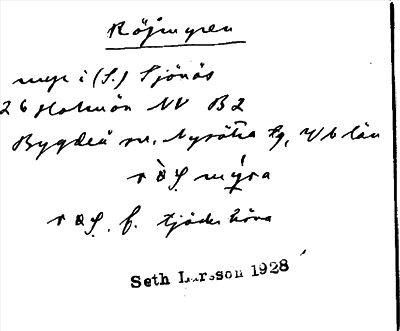 Röjmyren
myr i (S.) Sjönäs
26 Holmön NV B2
Bygdeå sn, Nysätra tg, V/b län
myra
f. tjäder
Seth Larsson 1928